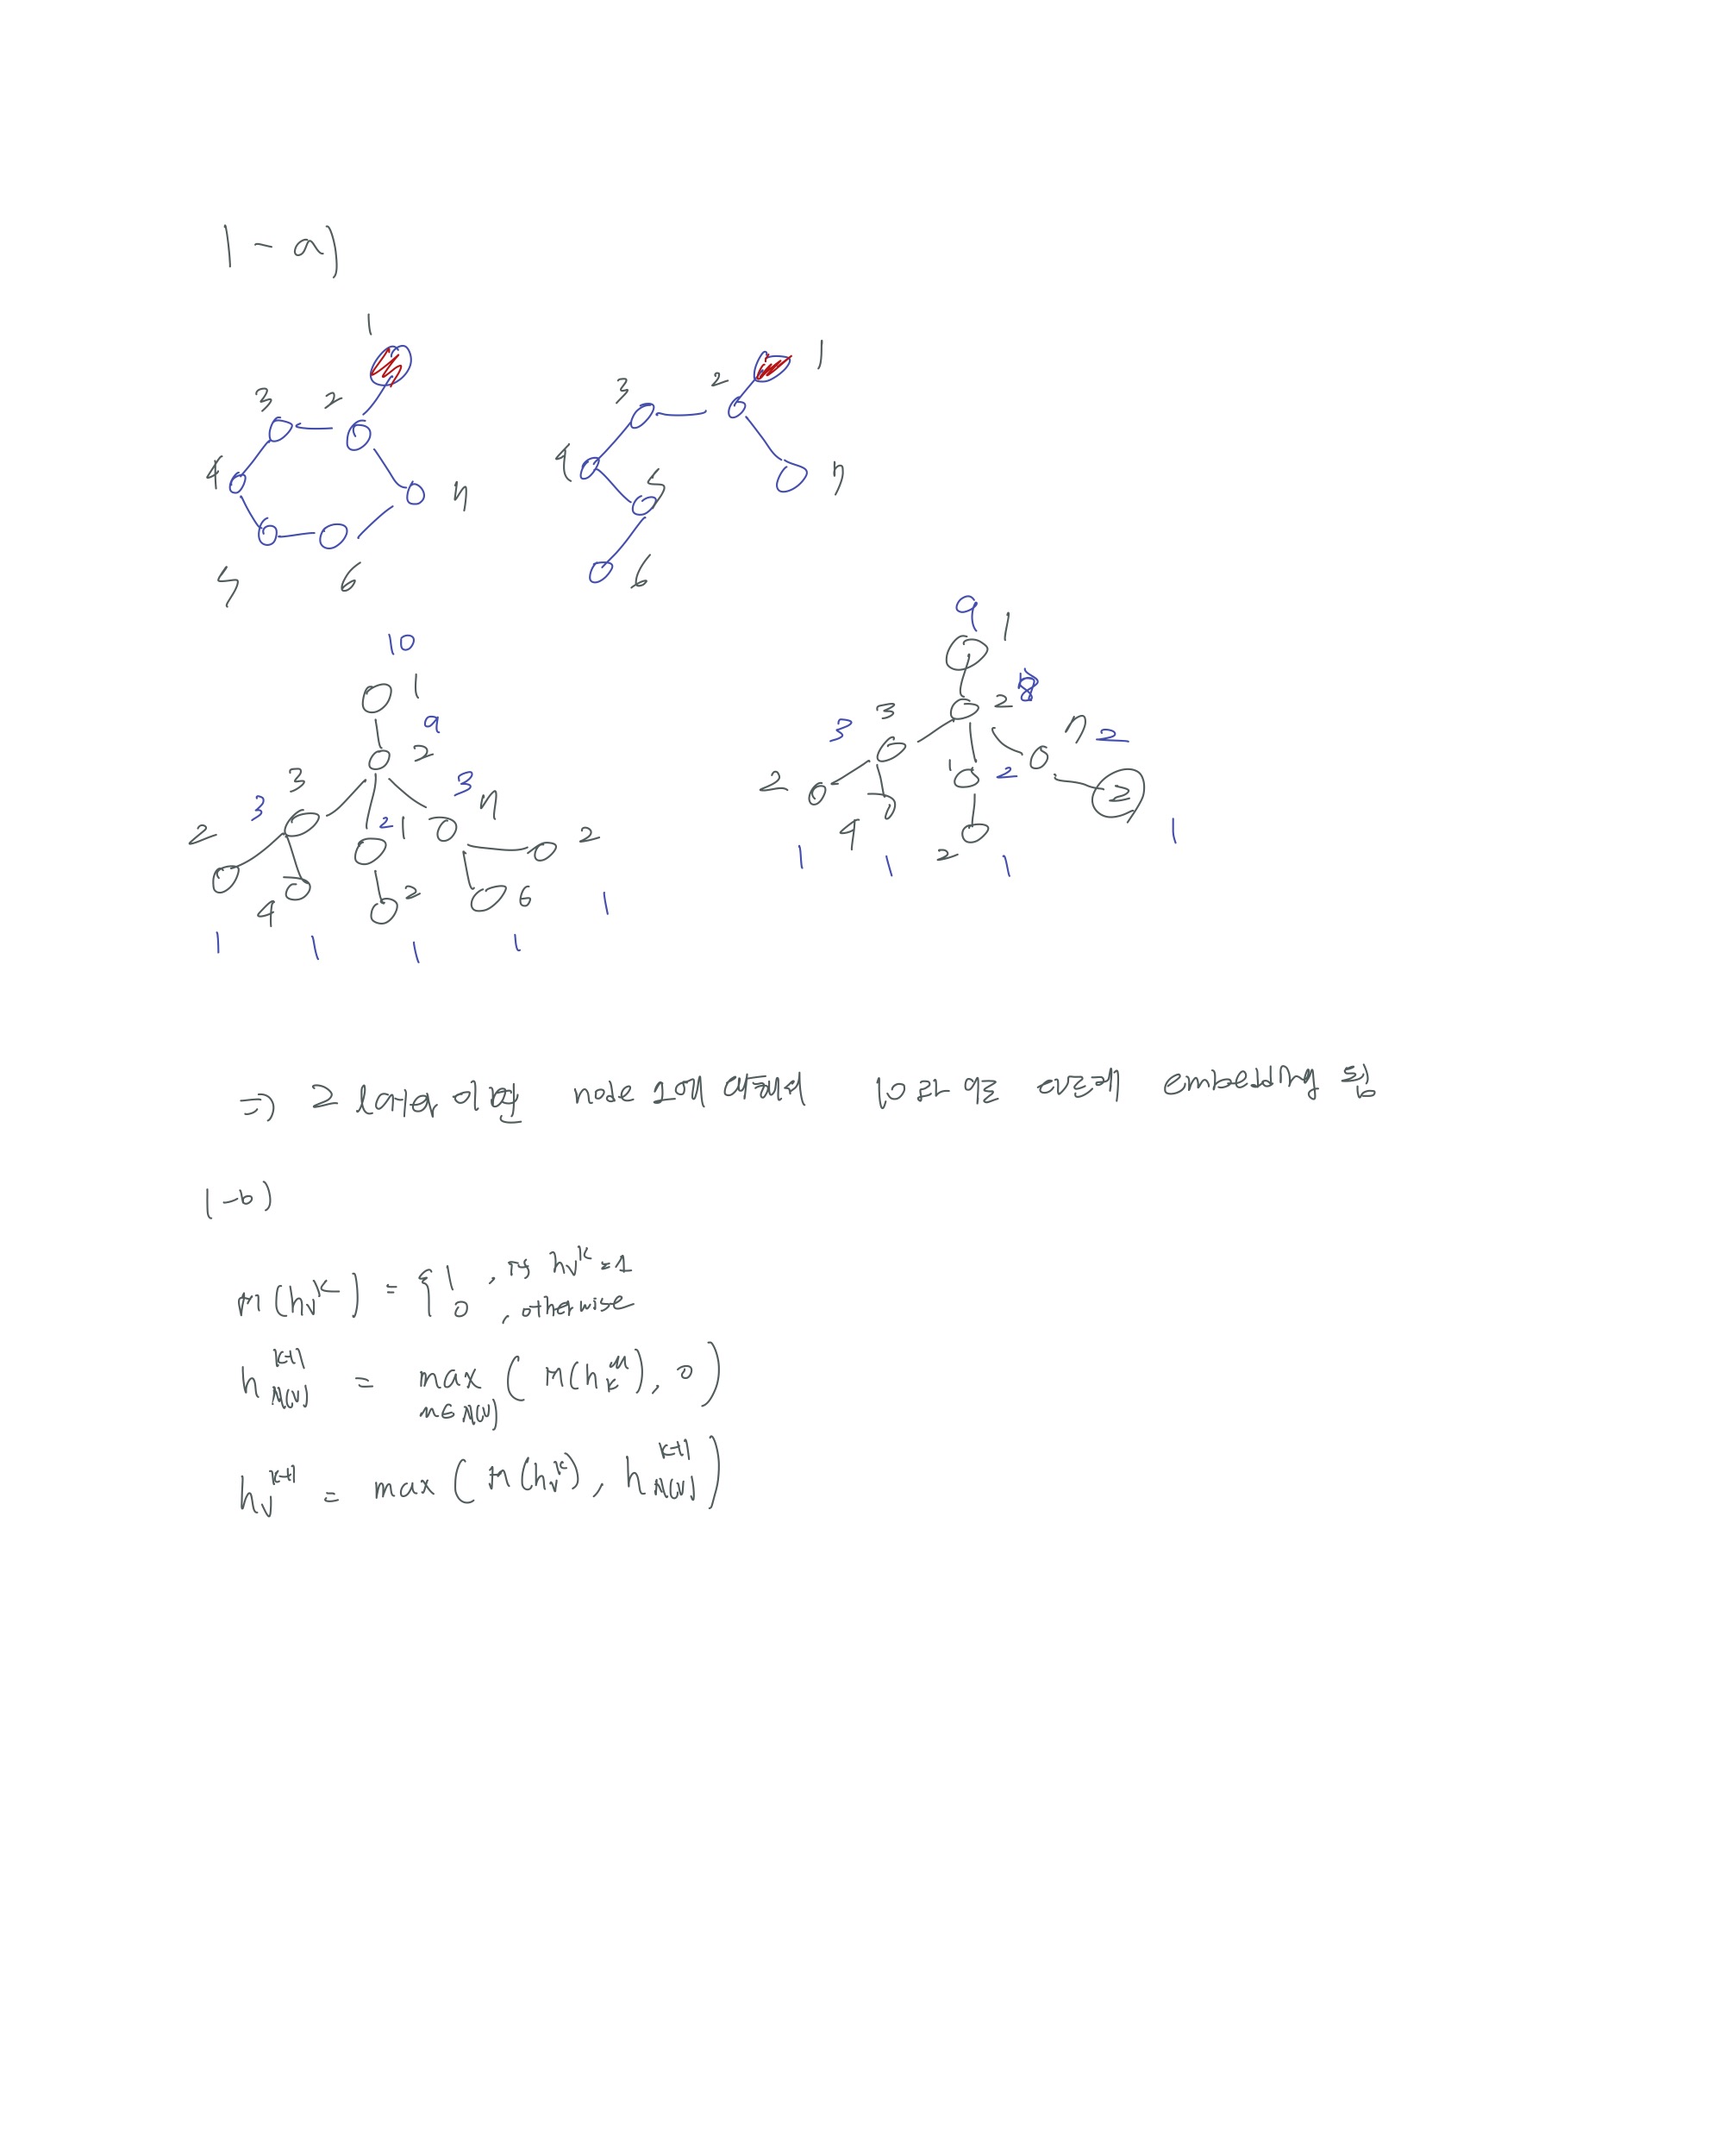 1-a)
1
3 2
4 7
5 6
1
3 2
4 5 7
6
10
1
9
2
3 3
3 7
2 2 1 2
4 2 6
1 1 1 1 1
9
1
2 8
3 3 7 2
2 1 2 2
4 2
1 1 1 1
⇒ 2 layer node 1 10 9 embedding
1-b)
M(h_v^k) = { 1 , if h_v^k = 1
0 , otherwise
h_{N(v)}^{k+1} = max_{m∈N(v)} ( M(h^k), 0 )
h_v^{k+1} = max ( M(h_v^k), h_{N(v)}^{k+1} )